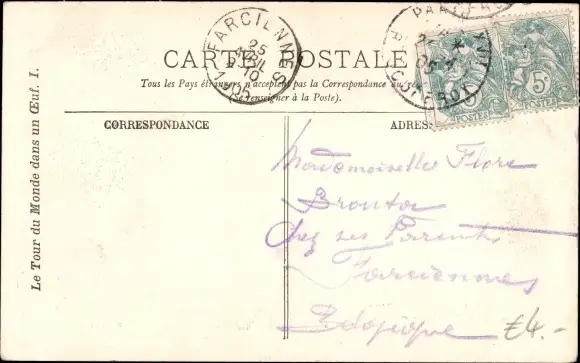 CARTE POSTALE
Tous les Pays étrangers n'acceptent pas la Correspondance au
(Se renseigner à la Poste).
FARCIENNES
25
AVRIL
10
1905
5c
POSTES
5c
POSTES
CORRESPONDANCE
ADRES
Mademoiselle Flore
Brouta
chez ses Parents
Farciennes
Belgique
£4.-
Le Tour du Monde dans un Œuf. I.